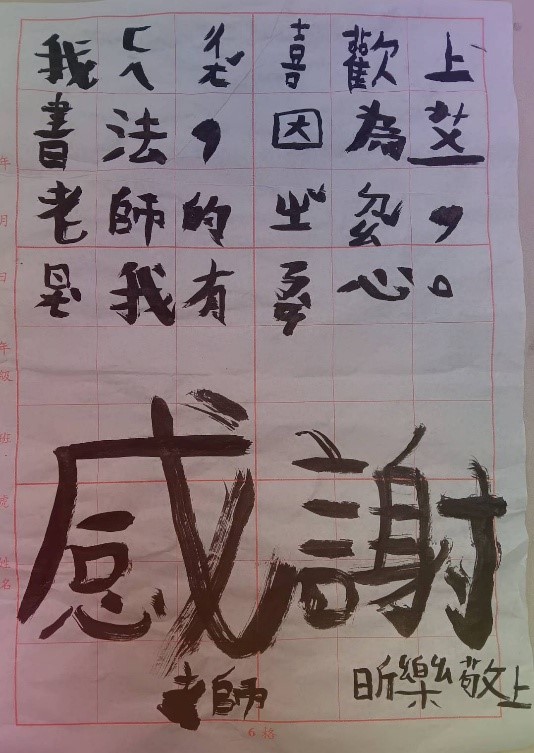 我ㄈㄟㄔㄤˊ喜歡上
書法，因為
老師的，
我有心。
感謝
老師
昕樂敬上
年
月
日
年級
班
號
姓名
6格